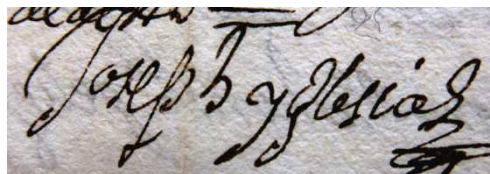 Joseph yglesias